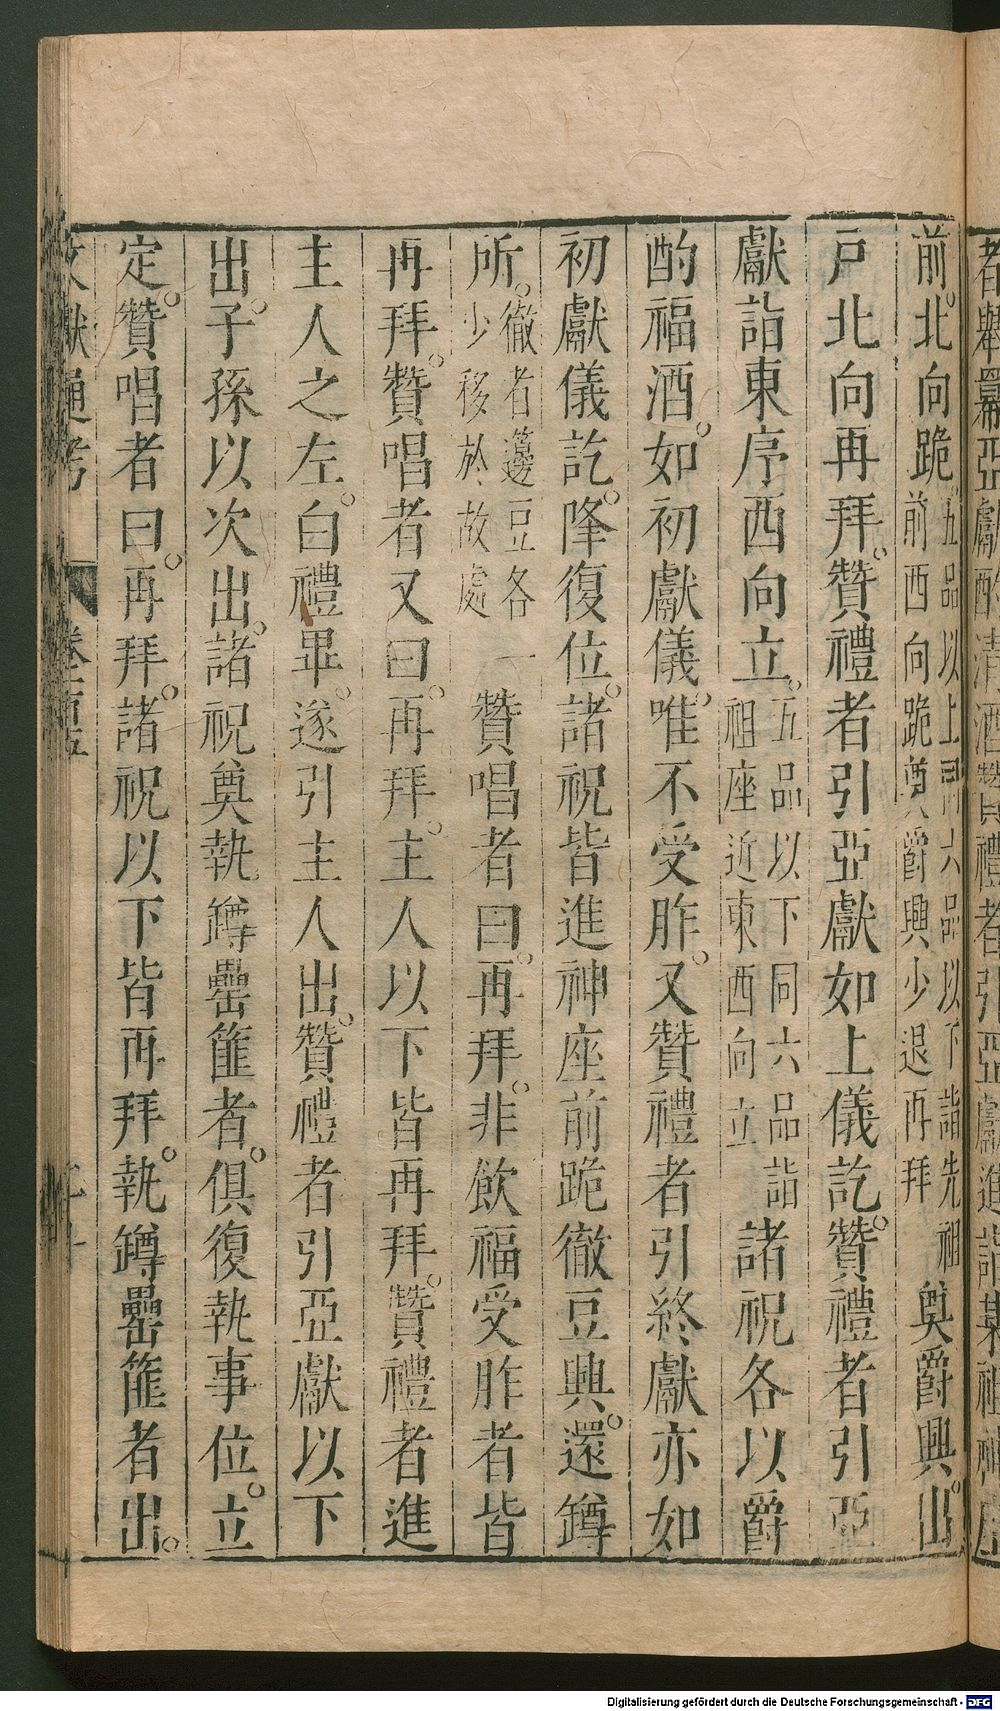 者舉冪亞獻酌清酒贊禮者引亞獻進詣某祖神座
前北向跪。五品以上同六品以下詣先祖
前西向跪奠爵興少退再拜
奠爵興。出
戶北向再拜。贊禮者引亞獻如上儀訖。贊禮者引亞
獻詣東序西向立。五品以下同六品詣
祖座近東西向立
諸祝各以爵
酌福酒。如初獻儀。唯不受胙。又贊禮者引終獻亦如
初獻儀訖。降復位。諸祝皆進神座前跪徹豆興。還罇
所。徹者籩豆各一
少移於故處
贊唱者曰。再拜。非飲福受胙者皆
再拜。贊唱者又曰。再拜。主人以下皆再拜。贊禮者進
主人之左。白禮畢。遂引主人出。贊禮者引亞獻以下
出。子孫以次出。諸祝奠執罇罍篚者。俱復執事位。立
定。贊唱者曰。再拜。諸祝以下皆再拜。執罇罍篚者出。
文獻通考 卷一百五
Digitalisierung gefördert durch die Deutsche Forschungsgemeinschaft - DFG